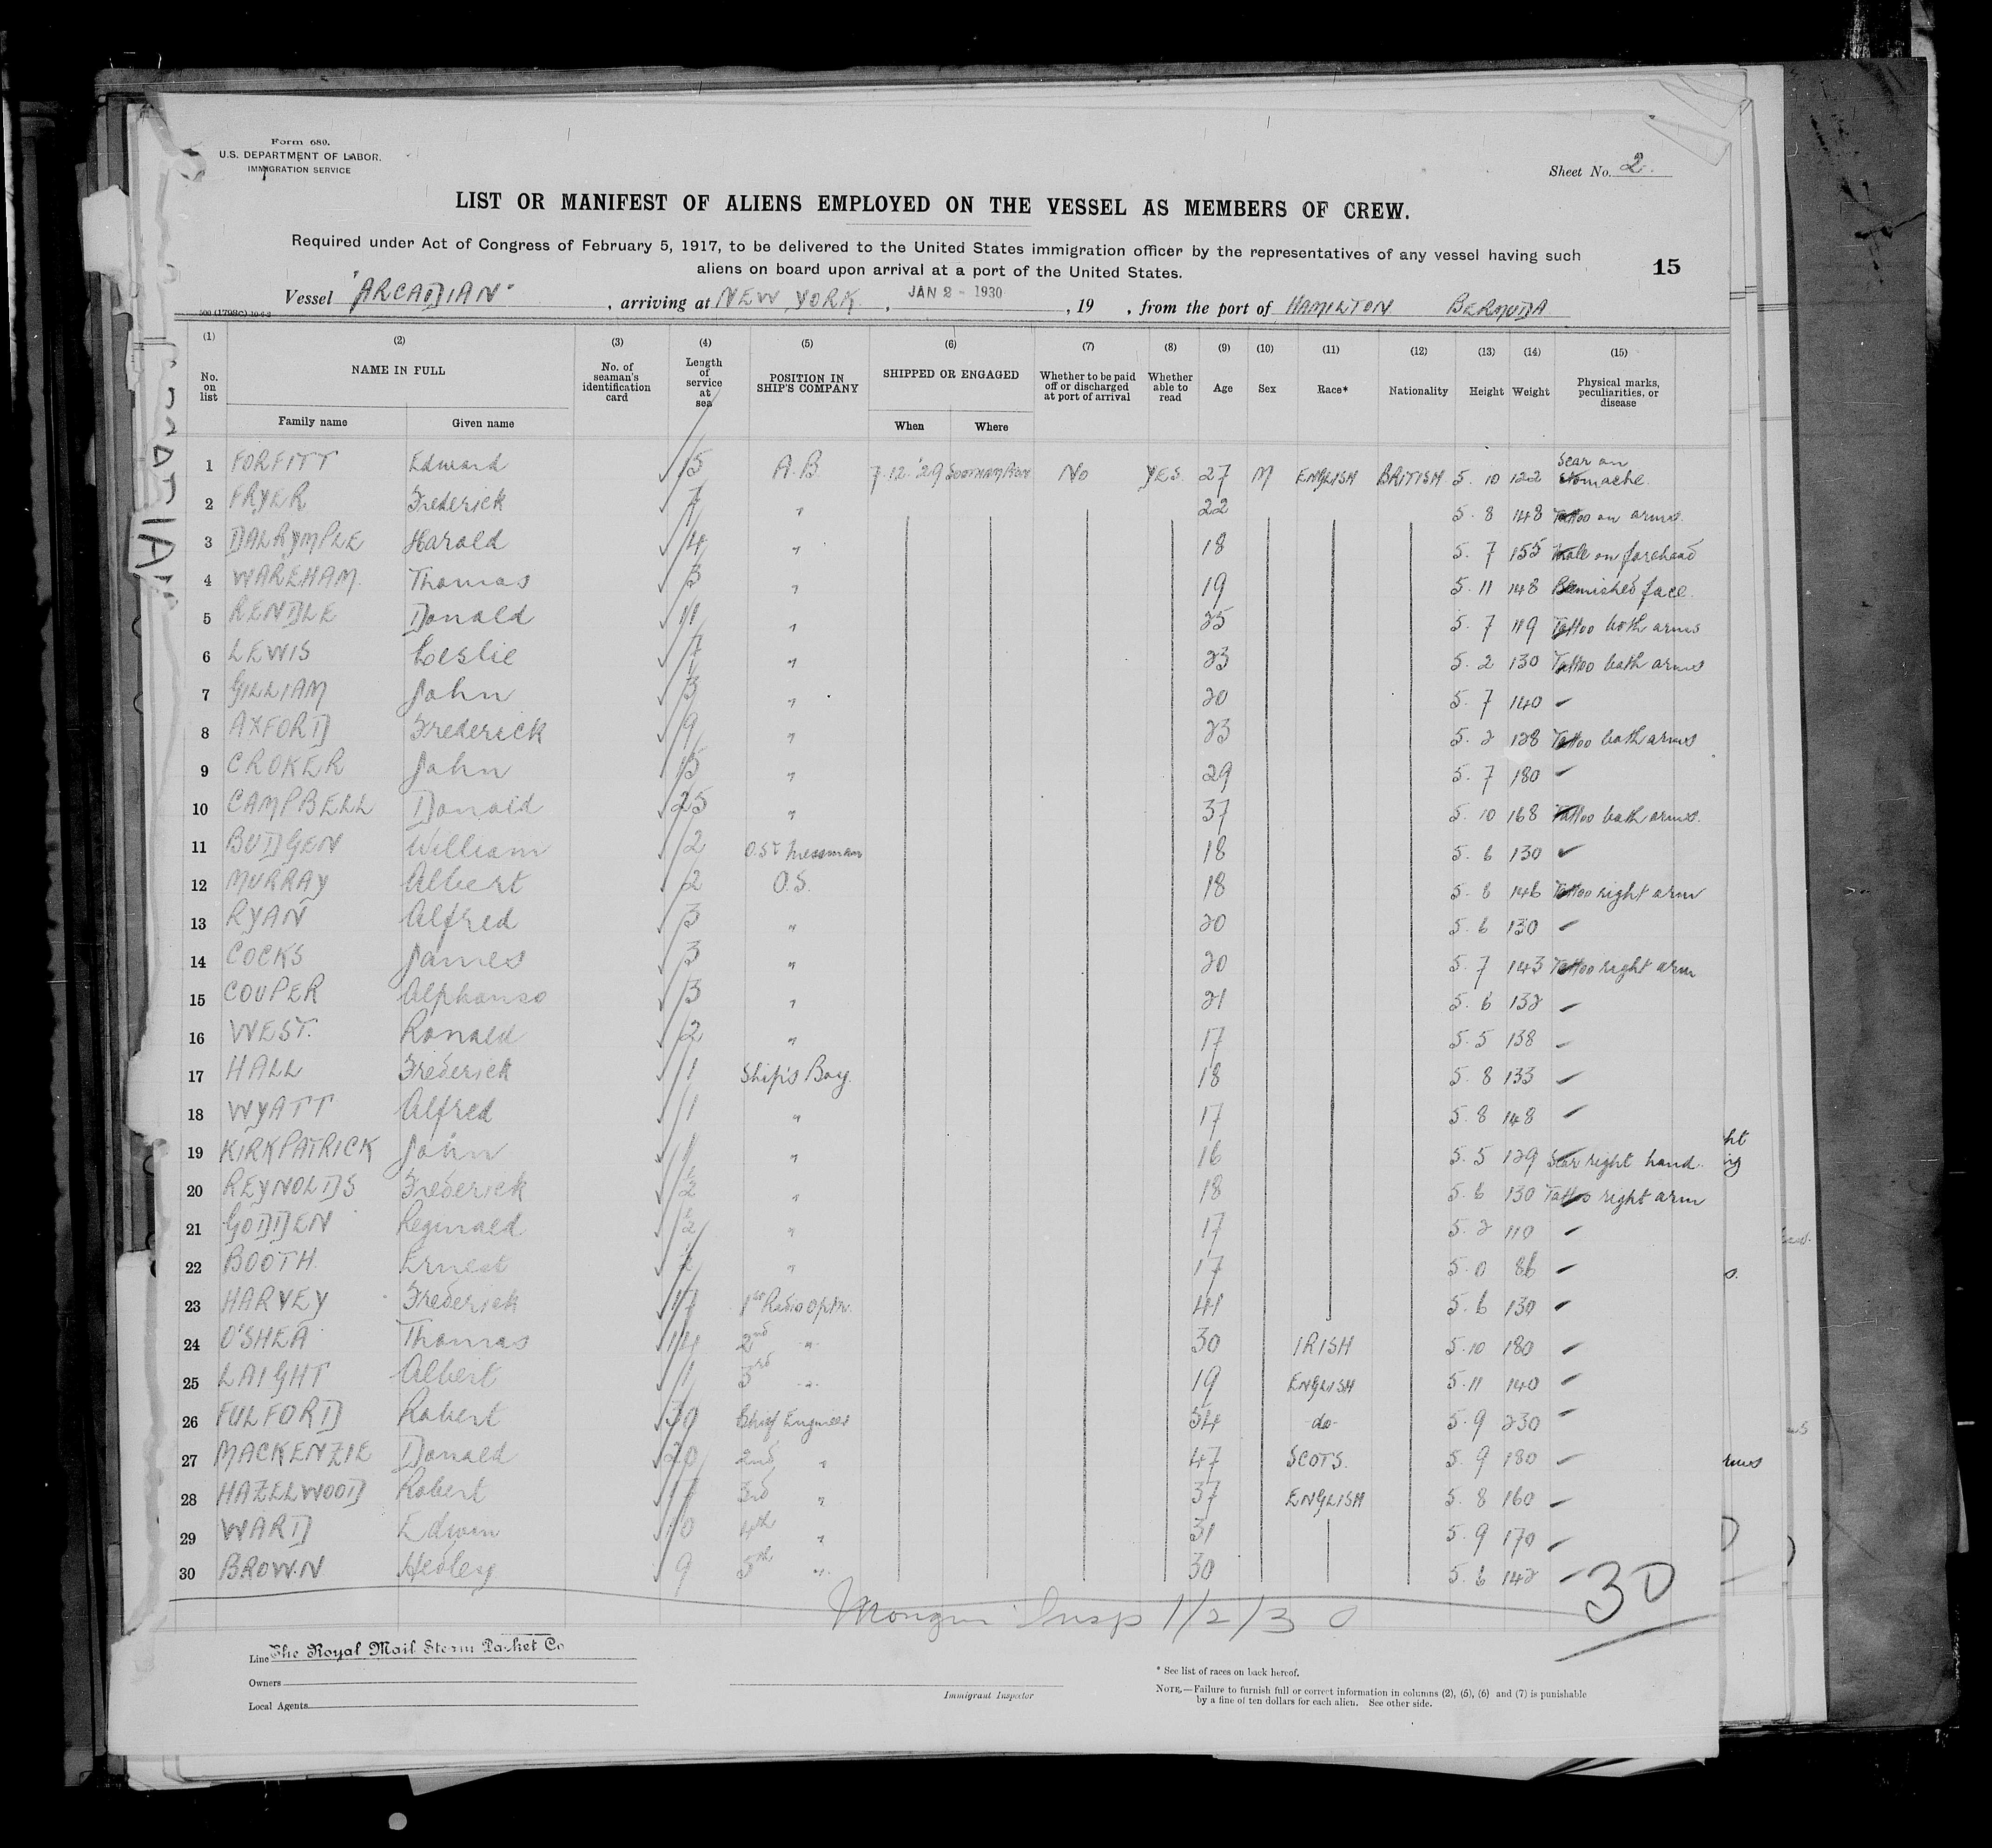 Form 680.
U.S. DEPARTMENT OF LABOR.
IMMIGRATION SERVICE
Sheet No. 2.
LIST OR MANIFEST OF ALIENS EMPLOYED ON THE VESSEL AS MEMBERS OF CREW.
Required under Act of Congress of February 5, 1917, to be delivered to the United States immigration officer by the representatives of any vessel having such
aliens on board upon arrival at a port of the United States.
15
Vessel "ARCADIAN" , arriving at NEW YORK , JAN 2 - 1930 , 19 , from the port of HAMILTON BERMUDA
(1) (2) (3) (4) (5) (6) (7) (8) (9) (10) (11) (12) (13) (14) (15)
No. on list NAME IN FULL No. of seaman's identification card Length of service at sea POSITION IN SHIP'S COMPANY SHIPPED OR ENGAGED Whether to be paid off or discharged at port of arrival Whether able to read Age Sex Race* Nationality Height Weight Physical marks, peculiarities, or disease
Family name Given name When Where
1 FORFITT Edward 15 A.B 7.12.'29 No YES 27 M ENGLISH BRITISH 5. 10 122 Scar on stomache.
2 FRYER Frederick 7 " 22 5. 8 148 Tattoo on arms.
3 DALRYMPLE Harold 4 " 18 5. 7 155 on forehead
4 WAREHAM. Thomas 3 " 19 5. 11 148 Blemished face.
5 RENDLE Donald 11 " 25 5. 7 119 Tattoo both arms
6 LEWIS Leslie 7 " 23 5. 2 130 Tattoo both arms
7 GILLIAM John 3 " 20 5. 7 140
8 AXFORD Frederick 9 " 23 5. 2 128 Tattoo both arms
9 CROKER John 15 " 29 5. 7 180
10 CAMPBELL Donald 25 " 37 5. 10 168 Tattoo both arms.
11 BUDGEN William 2 O.S. messman 18 5. 6 130
12 MURRAY Albert 2 O.S. 18 5. 8 146 Tattoo right arm
13 RYAN Alfred 3 " 20 5. 6 130
14 COCKS James 3 " 20 5. 7 143 Tattoo right arm
15 COUPER Alphonso 3 " 21 5. 6 132
16 WEST. Ronald 2 " 17 5. 5 138
17 HALL Frederick 1 Ship's Boy. 18 5. 8 133
18 WYATT Alfred 1 " 17 5. 8 148
19 KIRKPATRICK John 1 " 16 5. 5 129 Scar right hand.
20 REYNOLDS Frederick ½ " 18 5. 6 130 Tattoo right arm
21 GODDEN Reginald ½ " 17 5. 2 110
22 BOOTH. Ernest " 17 5. 0 86
23 HARVEY Frederick 17 1st Radio Optr. 41 5. 6 130
24 O'SHEA Thomas 14 2nd " 30 IRISH 5. 10 180
25 LAIGHT Albert 1 3rd " 19 ENGLISH 5. 11 140
26 FULFORD Robert 30 Chief Engineer 54 -do- 5. 9 230
27 MACKENZIE Donald 20 2nd " 47 SCOTS. 5. 9 180
28 HAZELWOOD Robert 17 3rd " 37 ENGLISH 5. 8 160
29 WARD Edwin 10 4th " 31 5. 9 170
30 BROWN Hedley 9 5th " 30 5. 6 142
30
Insp 1/2/30
Line The Royal Mail Steam Packet Co
Owners
Local Agents
Immigrant Inspector
* See list of races on back hereof.
NOTE.—Failure to furnish full or correct information in columns (2), (5), (6) and (7) is punishable
by a fine of ten dollars for each alien. See other side.